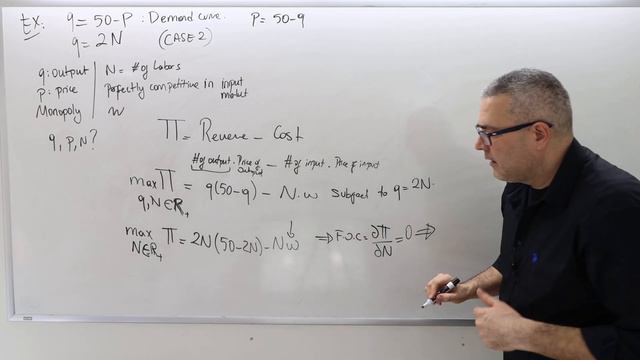 Ex: q = 50-P : Demand curve. P = 50-q
q = 2N (CASE 2)
q: output N = # of Labors
P: price perfectly competitive in input market
Monopoly w
q, P, N?
Π = Revenue - Cost
# of output . Price of output - # of input . Price of input
max Π = q(50-q) - N.w Subject to q = 2N.
q,N∈R+
max Π = 2N(50-2N) - Nw ⇒ F.O.C = ∂Π/∂N = 0 ⇒
N∈R+